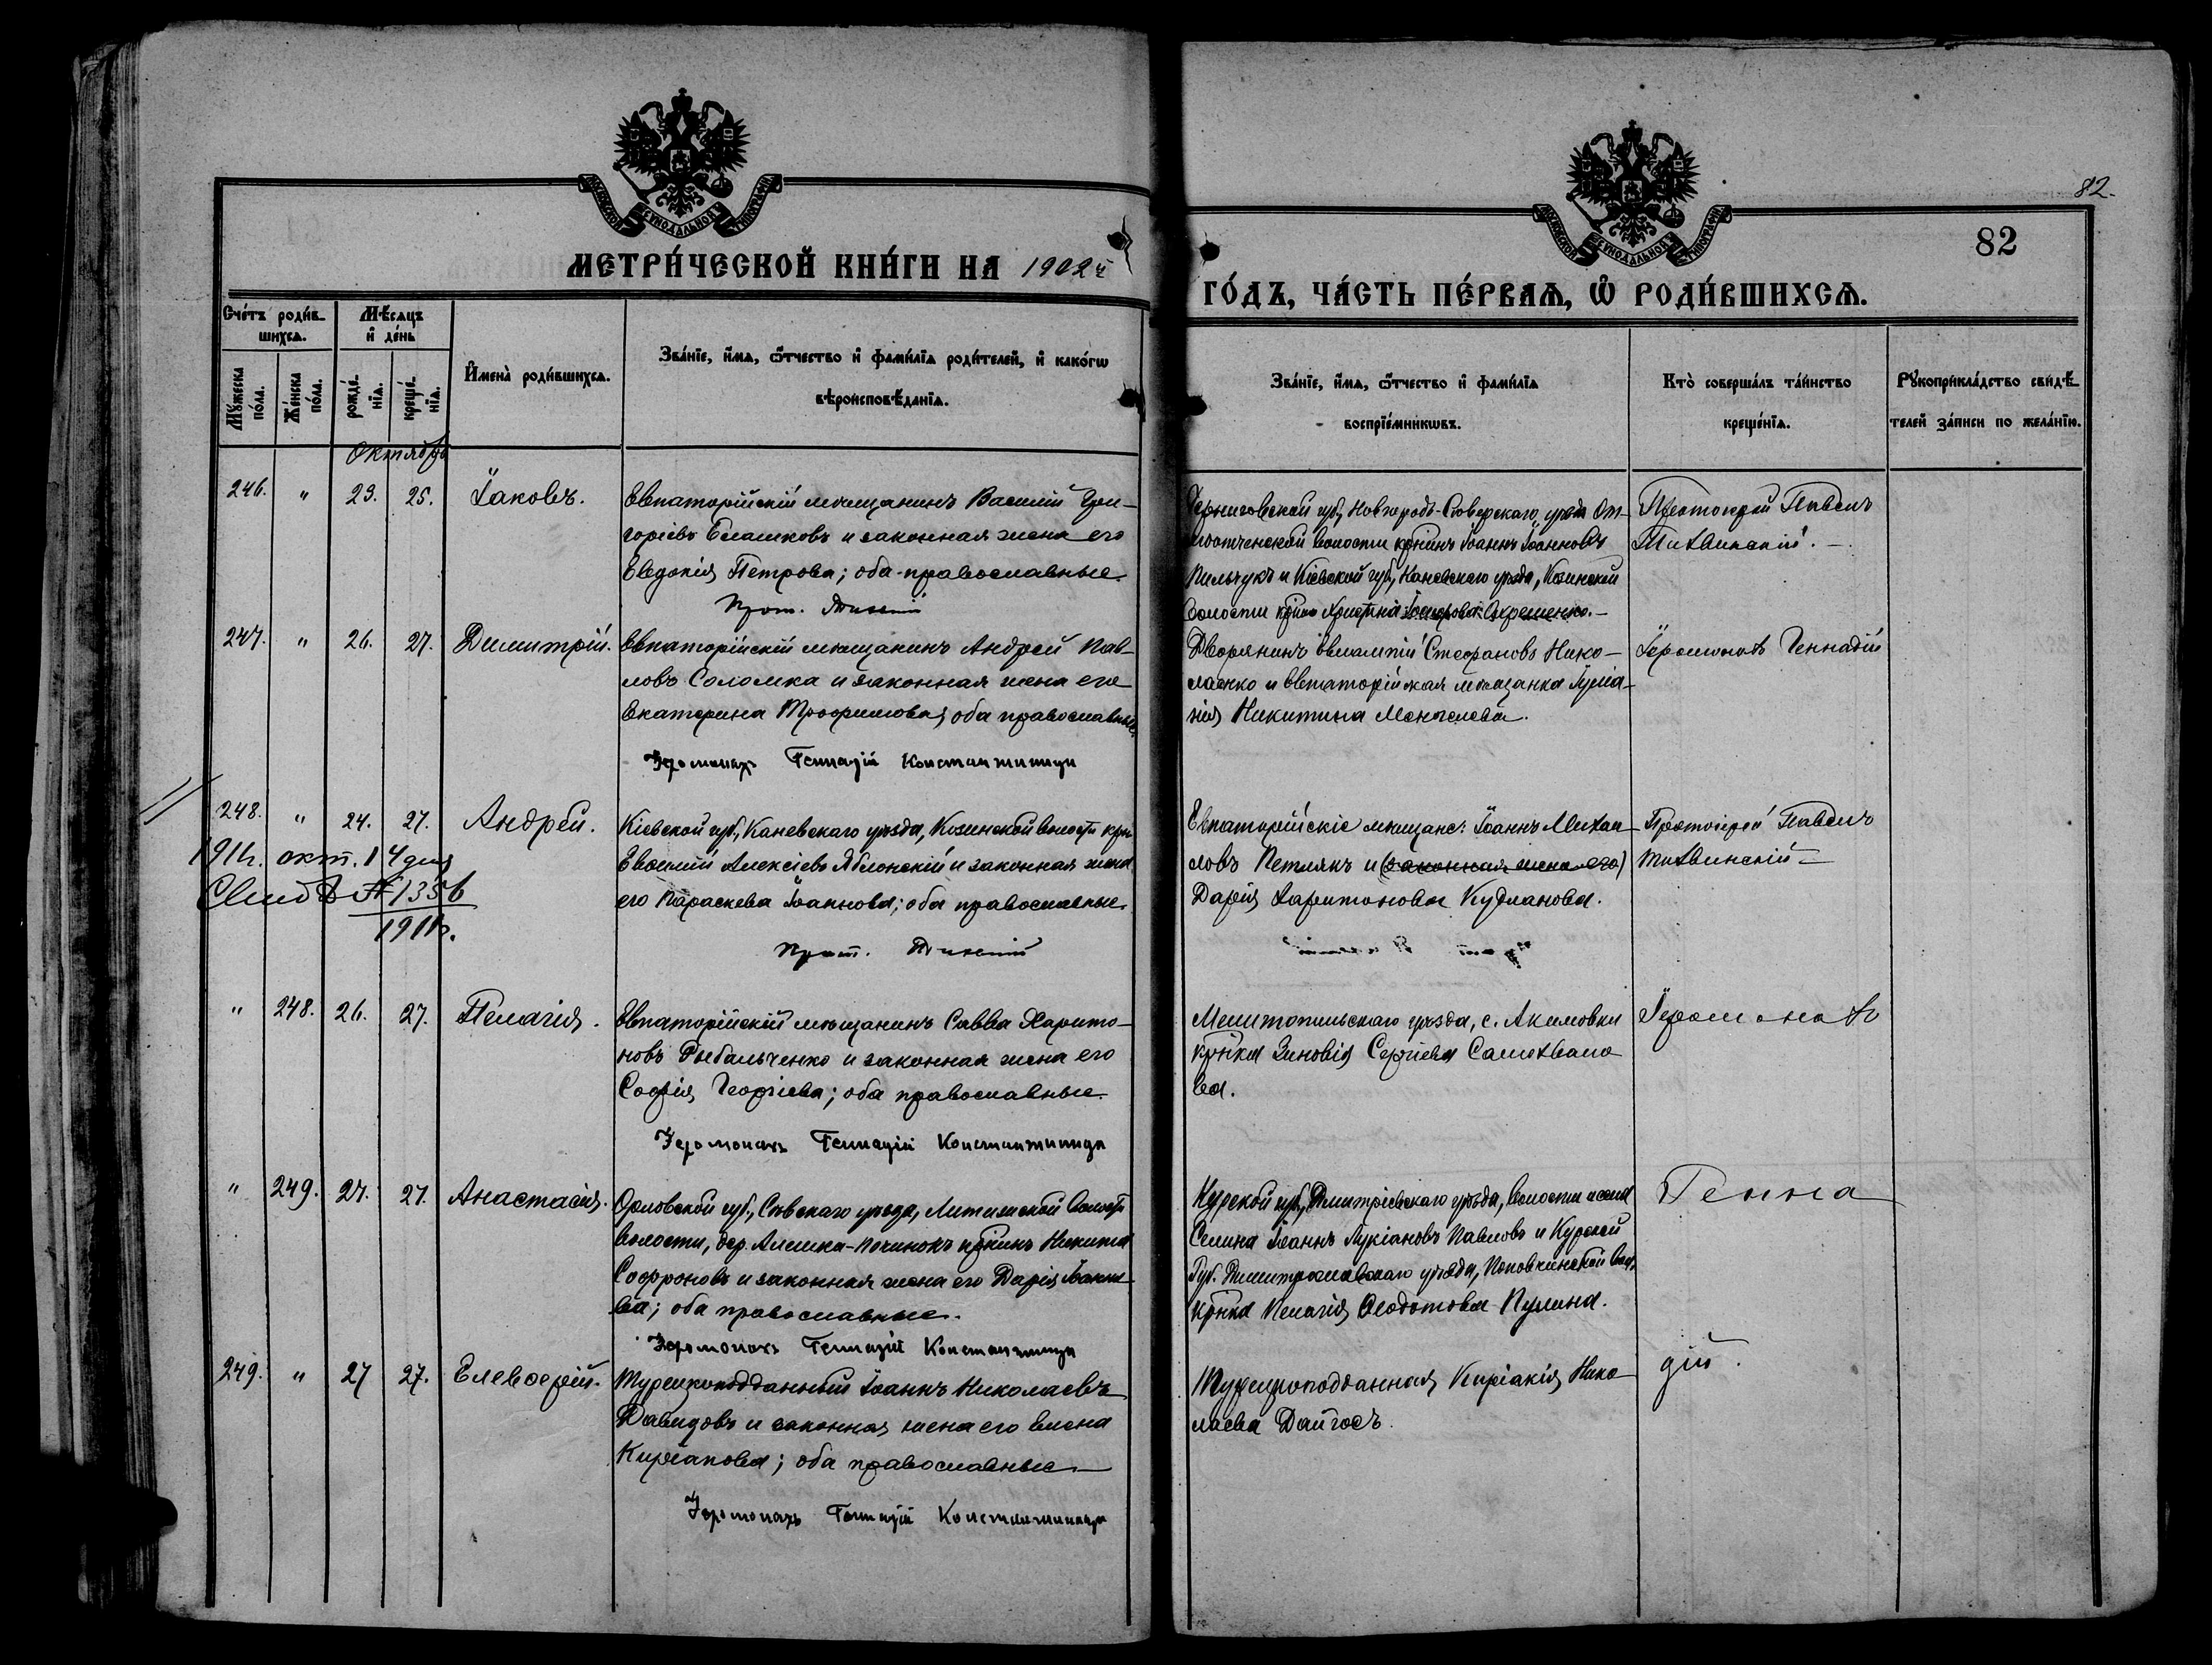 82.
82
МОСКОВСКОЙ СѴНОДАЛЬНОЙ ТИПОГРАФІИ
МОСКОВСКОЙ СѴНОДАЛЬНОЙ ТИПОГРАФІИ
МЕТРИ́ЧЕСКОЙ КНИ́ГИ НА 1902й
ГО́ДЪ, ЧА́СТЬ ПЕ́РВАѦ, Ѡ҆ РОДИ́ВШИХСѦ.
Сче́тъ роди́в-
шихсѧ.
Мѣ́сѧцъ
и҆ де́нь
Мꙋ́жеска по́ла.
Же́нска по́ла.
рожде́-
нїѧ.
креще́-
нїѧ.
И҆мена̀ роди́вшихсѧ.
Зва́нїе, и҆́мѧ, ѻ҆́тчество и҆ фами́лїѧ роди́телей, и҆ како́гѡ
вѣроисповѣ́данїѧ.
Зва́нїе, и҆́мѧ, ѻ҆́тчество и҆ фами́лїѧ
воспрїе́мникѡвъ.
Кто̀ соверша́лъ та́инство
креще́нїѧ.
Рꙋкоприкла́дство свидѣ́-
телей за́писи по жела́нїю.
Октябрь
246. " 23. 25. Іаковъ.
Евпаторійскій мѣщанинъ Василій Гри-
горіевъ Елашковъ и законная жена его
Евдокія Петрова; оба православные.
Прот. Тихвинскій
Черниговской губ., Новгородъ-Сѣверскаго уѣзда
волости кр-нинъ Іоаннъ Іоанновъ
Пильчукъ и Кіевской губ., Каневскаго уѣзда, Козинской
волости Христина
Протоіерей Павелъ
Тихвинскій.
247. " 26. 27. Димитрій.
Евпаторійскій мѣщанинъ Андрей Пав-
ловъ Соломка и законная жена его
Екатерина Трофимова; оба православные.
Іеромонахъ Геннадій Константиниди
Дворянинъ Евлампій Стефановъ Нико-
лаенко и Евпаторійская мѣщанка Іуліа-
нія Никитина
Іеромонахъ Геннадій
248. " 24. 27. Андрей.
1911г. окт. 14 дня
Свид. № 1356
1911г.
Кіевской губ., Каневскаго уѣзда, Козинской волости кр-нъ
Евсимій Алексіевъ Яблонскій и законная жена
его Параскева Іоаннова; оба православные.
Прот. Тихвинскій
Евпаторійскіе мѣщане: Іоаннъ Михаи-
ловъ Петлякъ и (законная жена его)
Дарія Харитонова Курланова.
Протоіерей Павелъ
Тихвинскій
" 248. 26. 27. Пелагія.
Евпаторійскій мѣщанинъ Савва Харито-
новъ Рыбальченко и законная жена его
Софія Георгіева; оба православные.
Іеромонахъ Геннадій Константиниди
Мелитопольскаго уѣзда, с. Акимовки
кр-нка Зиновія Сергіева Самохвало
ва.
Іеромонахъ
" 249. 27. 27. Анастасія.
Орловской губ., Сѣвскаго уѣзда, Литижской волости
волости, дер. Алешка-Починокъ кр-нинъ Никита
Софроновъ и законная жена его Дарія Іоанно-
ва; оба православные.
Іеромонахъ Геннадій Константиниди
Курской губ., Дмитріевскаго уѣзда, волости и села
Селина Іоаннъ Лукіановъ Павловъ и Курской
Губ. уѣзда, вол.
кр-нка Пелагія Ѳеодотова
Генна
249. " 27 27. Елевѳерій.
Турецкоподданный Іоаннъ Николаевъ
Давидовъ и законная жена его Елена
Киріакова; оба православные
Іеромонахъ Геннадій Константиниди
Турецкоподданная Киріакія Нико-
лаева Дайгосъ.
дій.